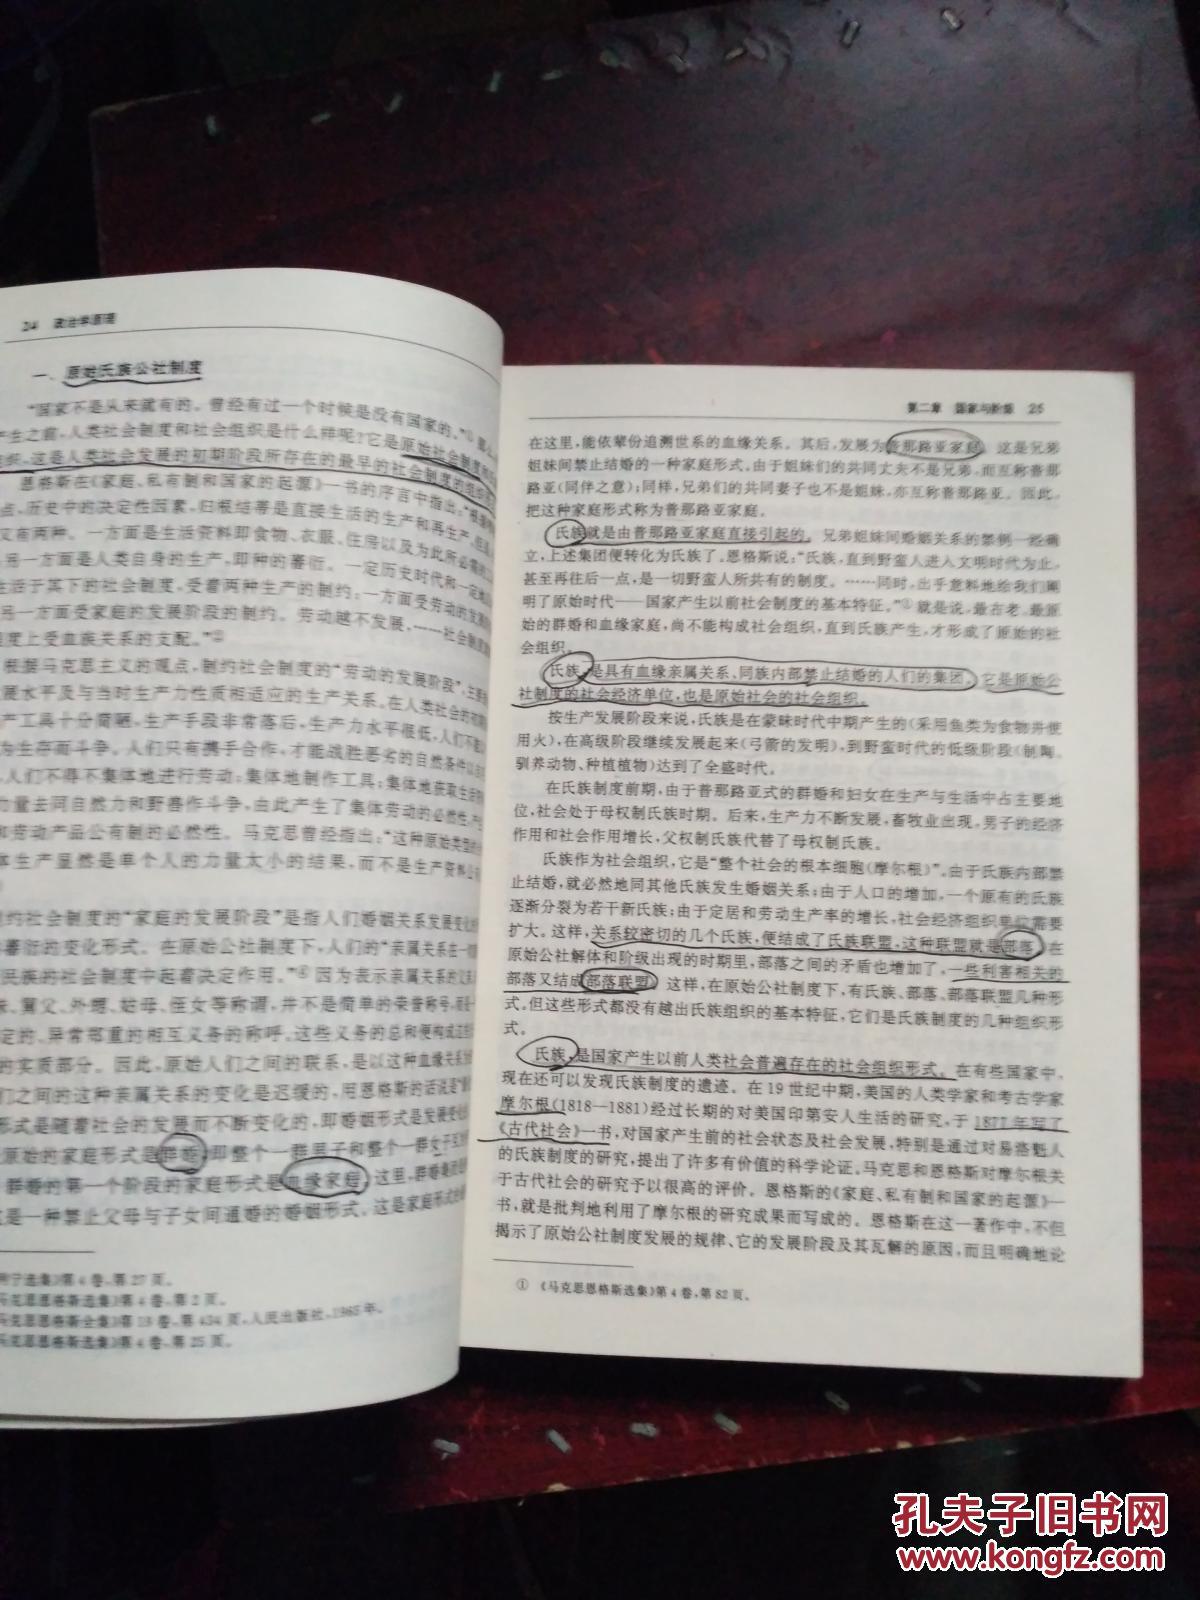 24 政治学原理
一、原始氏族公社制度
“国家不是从来就有的。曾经有过一个时候是没有国家的。”①那么
产生之前，人类社会制度和社会组织是什么样呢？它是原始社会制度
组织，这是人类社会发展的初期阶段所存在的最早的社会制度的组织
恩格斯在《家庭、私有制和国家的起源》一书的序言中指出：“根据
点，历史中的决定性因素，归根结蒂是直接生活的生产和再生产。但是
又有两种。一方面是生活资料即食物、衣服、住房以及为此所必需的
另一方面是人类自身的生产，即种的蕃衍。一定历史时代和一定地
生活于其下的社会制度，受着两种生产的制约：一方面受劳动的发展
另一方面受家庭的发展阶段的制约。劳动越不发展，……社会制度
程度上受血族关系的支配。”②
根据马克思主义的观点，制约社会制度的“劳动的发展阶段”，主要
展水平及与当时生产力性质相适应的生产关系。在人类社会的初期
产工具十分简陋，生产手段非常落后，生产力水平很低，人们不能
为生存而斗争。人们只有携手合作，才能战胜恶劣的自然条件以
，人们不得不集体地进行劳动：集体地制作工具；集体地获取生活
力量去同自然力和野兽作斗争，由此产生了集体劳动的必然性，产
和劳动产品公有制的必然性。马克思曾经指出：“这种原始类型的
体生产显然是单个人的力量太小的结果，而不是生产资料公有
制约社会制度的“家庭的发展阶段”是指人们婚姻关系发展变化
蕃衍的变化形式。在原始公社制度下，人们的“亲属关系在一切
民族的社会制度中起着决定作用。”④因为表示亲属关系的父
妹、舅父、外甥、姑母、侄女等称谓，并不是简单的荣誉称号，而是
定的、异常郑重的相互义务的称呼，这些义务的总和便构成这些
的实质部分。因此，原始人们之间的联系，是以这种血缘关系为
们之间的这种亲属关系的变化是迟缓的，用恩格斯的话说是“
形式是随着社会的发展而不断变化的，即婚姻形式是发展变化
最原始的家庭形式是群婚，即整个一群男子和整个一群女子互为
群婚的第一个阶段的家庭形式是血缘家庭，这里，群婚集团是
这是一种禁止父母与子女间通婚的婚姻形式。这是家庭形式的
列宁选集》第4卷，第27页。
马克思恩格斯选集》第4卷，第2页。
马克思恩格斯全集》第19卷，第434页，人民出版社，1965年。
马克思恩格斯选集》第4卷，第25页。
第二章 国家与阶级 25
在这里，能依辈份追溯世系的血缘关系。其后，发展为普那路亚家庭。这是兄弟
姐妹间禁止结婚的一种家庭形式。由于姐妹们的共同丈夫不是兄弟，而互称普那
路亚（同伴之意）；同样，兄弟们的共同妻子也不是姐妹，亦互称普那路亚。因此，
把这种家庭形式称为普那路亚家庭。
氏族就是由普那路亚家庭直接引起的。兄弟姐妹间婚姻关系的禁例一经确
立，上述集团便转化为氏族了。恩格斯说：“氏族，直到野蛮人进入文明时代为止，
甚至再往后一点，是一切野蛮人所共有的制度。……同时，出乎意料地给我们阐
明了原始时代——国家产生以前社会制度的基本特征。”①就是说，最古老、最原
始的群婚和血缘家庭，尚不能构成社会组织，直到氏族产生，才形成了原始的社
会组织。
氏族，是具有血缘亲属关系、同族内部禁止结婚的人们的集团。它是原始公
社制度的社会经济单位，也是原始社会的社会组织。
按生产发展阶段来说，氏族是在蒙昧时代中期产生的（采用鱼类为食物并使
用火），在高级阶段继续发展起来（弓箭的发明），到野蛮时代的低级阶段（制陶、
驯养动物、种植植物）达到了全盛时代。
在氏族制度前期，由于普那路亚式的群婚和妇女在生产与生活中占主要地
位，社会处于母权制氏族时期。后来，生产力不断发展，畜牧业出现，男子的经济
作用和社会作用增长，父权制氏族代替了母权制氏族。
氏族作为社会组织，它是“整个社会的根本细胞（摩尔根）”。由于氏族内部禁
止结婚，就必然地同其他氏族发生婚姻关系；由于人口的增加，一个原有的氏族
逐渐分裂为若干新氏族；由于定居和劳动生产率的增长，社会经济组织单位需要
扩大。这样，关系较密切的几个氏族，便结成了氏族联盟，这种联盟就是部落。在
原始公社解体和阶级出现的时期里，部落之间的矛盾也增加了，一些利害相关的
部落又结成部落联盟。这样，在原始公社制度下，有氏族、部落、部落联盟几种形
式。但这些形式都没有越出氏族组织的基本特征，它们是氏族制度的几种组织形
式。
氏族，是国家产生以前人类社会普遍存在的社会组织形式。在有些国家中，
现在还可以发现氏族制度的遗迹。在19世纪中期，美国的人类学家和考古学家
摩尔根（1818—1881）经过长期的对美国印第安人生活的研究，于1877年写了
《古代社会》一书，对国家产生前的社会状态及社会发展，特别是通过对易洛魁人
的氏族制度的研究，提出了许多有价值的科学论证。马克思和恩格斯对摩尔根关
于古代社会的研究予以很高的评价。恩格斯的《家庭、私有制和国家的起源》一
书，就是批判地利用了摩尔根的研究成果而写成的。恩格斯在这一著作中，不但
揭示了原始公社制度发展的规律、它的发展阶段及其瓦解的原因，而且明确地论
① 《马克思恩格斯选集》第4卷，第82页。
孔夫子旧书网
www.kongfz.com